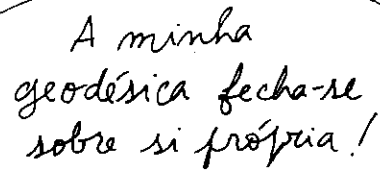 A minha
geodésica fecha-se
sobre si própria!